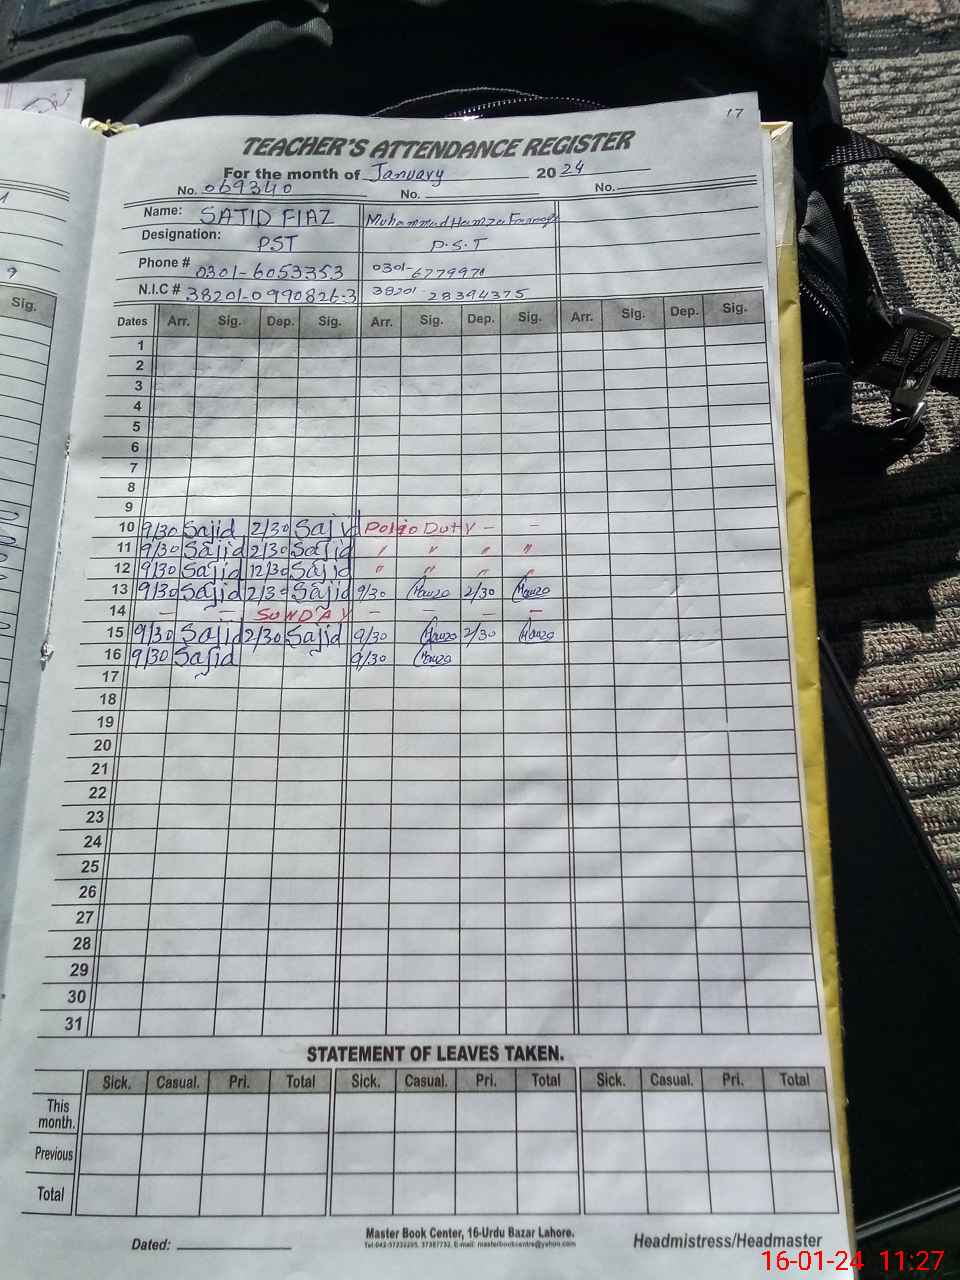 17
TEACHER'S ATTENDANCE REGISTER
For the month of January 2024
No. 069340 No. No.
Name: SAJID FIAZ Muhammad Hamza Farooq
Designation: PST P.S.T
Phone # 0301-6053353 0301-6779978
N.I.C # 38201-0990826-3 38201-28394375
Sig. Dates Arr. Sig. Dep. Sig. Arr. Sig. Dep. Sig. Arr. Sig. Dep. Sig.
9
1
2
3
4
5
6
7
8
9
10 9/30 Sajid 2/30 Sajid Polio Duty - -
11 9/30 Sajid 2/30 Sajid " " " "
12 9/30 Sajid 12/30 Sajid " " " "
13 9/30 Sajid 2/30 Sajid 9/30 Hamza 2/30 Hamza
14 - - SUNDAY - - - -
15 9/30 Sajid 2/30 Sajid 9/30 Hamza 2/30 Hamza
16 9/30 Sajid 9/30 Hamza
17
18
19
20
21
22
23
24
25
26
27
28
29
30
31
STATEMENT OF LEAVES TAKEN.
Sick. Casual. Pri. Total Sick. Casual. Pri. Total Sick. Casual. Pri. Total
This month.
Previous
Total
Dated: Master Book Center, 16-Urdu Bazar Lahore. Headmistress/Headmaster
E-mail: masterbookcentre@yahoo.com
16-01-24 11:27